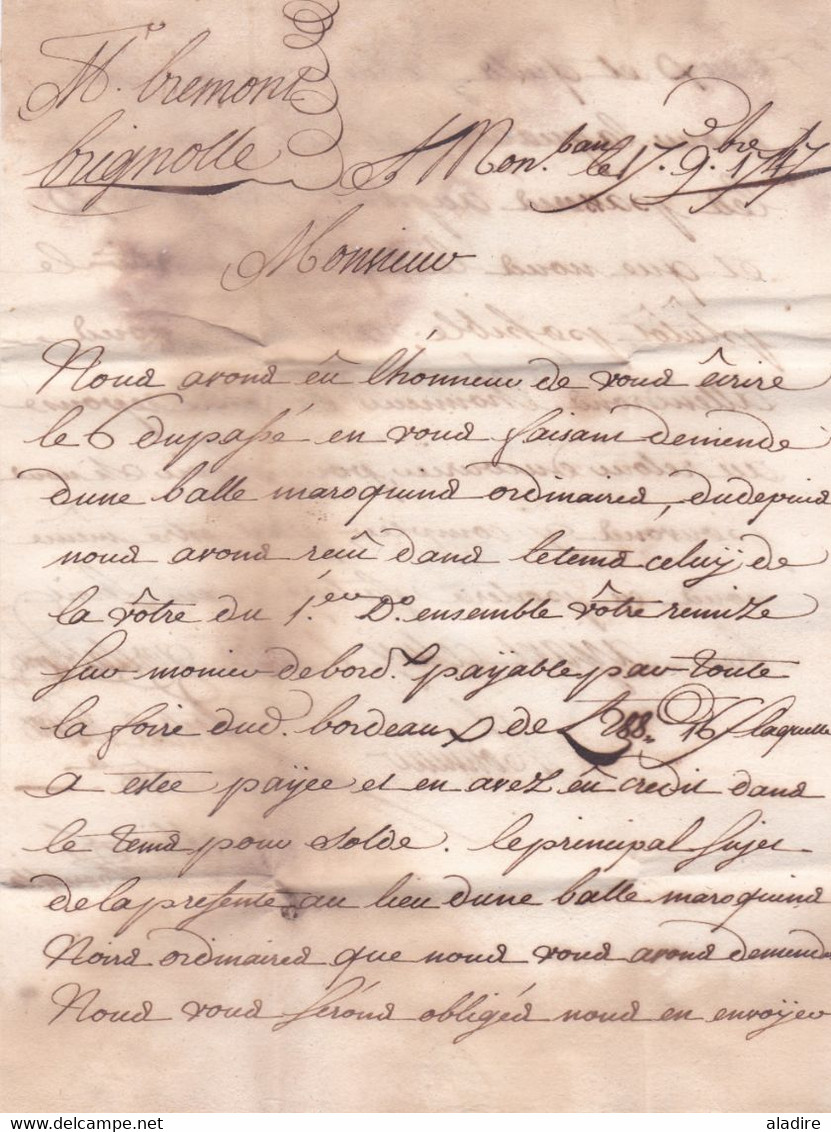 Mr. bremont
brignolle
A Mon.ban le 17. 9bre 1747
Monsieur
Nous avons eû l'honneur de vous êcrire
le 6 dupassé en vous faisant demende
dune balle maroquins ordinaires, dudepuis
nous avons reçû dans letems celuÿ de
la vôtre du 1.er Do. ensemble vôtre remize
sur monier debord.x paÿable par toute
la foire dud. bordeaux de laquelle
a estée paÿée et en avez eû credit dans
le tems pour solde. le principal sujet
delapresente au lieu dune balle maroquins
Noirs ordinaires que nous vous avons demende
Nous vous sérons obligés nous en envoÿer
aladire
www.delcampe.net